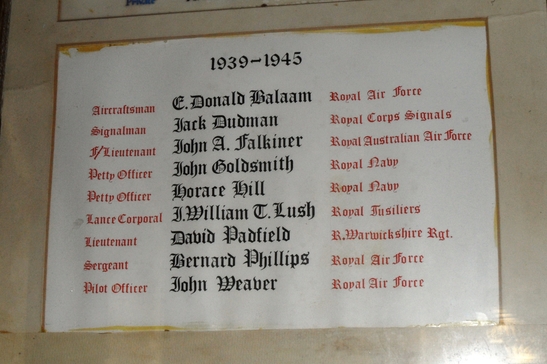 1939-1945
Aircraftsman E. Donald Balaam Royal Air Force
Signalman Jack Dudman Royal Corps Signals
F/Lieutenant John A. Falkiner Royal Australian Air Force
Petty Officer John Goldsmith Royal Navy
Petty Officer Horace Hill Royal Navy
Lance Corporal J. William T. Lush Royal Fusiliers
Lieutenant David Padfield R. Warwickshire Rgt.
Sergeant Bernard Phillips Royal Air Force
Pilot Officer John Weaver Royal Air Force